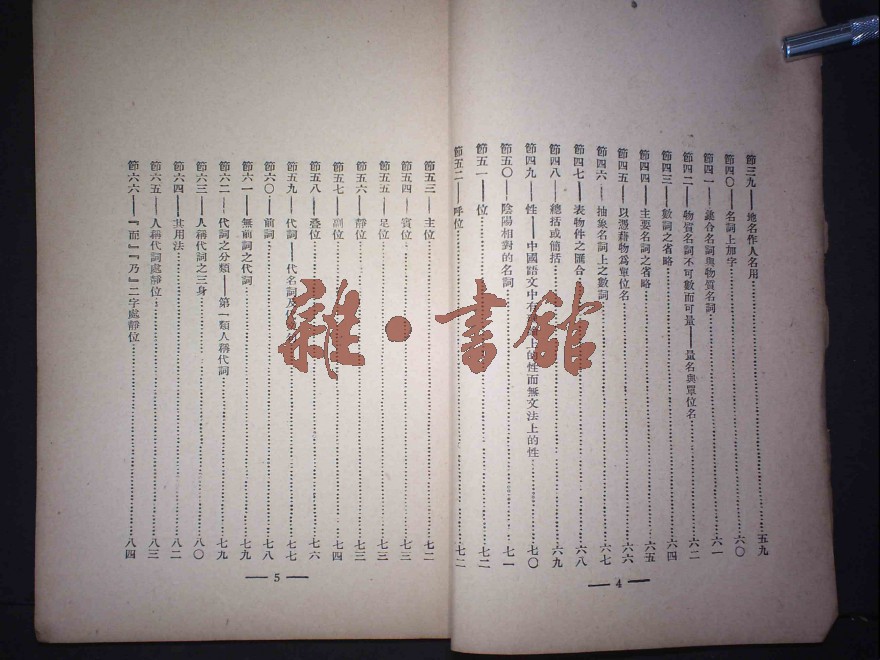 節三九──地名作人名用……五九
節四〇──名詞上加字……六〇
節四一──集合名詞與物質名詞……六一
節四二──物質名詞不可數而可量──量名與單位名……六二
節四三──數詞之省略……六四
節四四──主要名詞之省略……六五
節四五──以憑藉物爲單位名……六六
節四六──抽象名詞上之數詞……六七
節四七──表物件之匯合……六八
節四八──總括或簡括……六九
節四九──性──中國語文中有上的性而無文法上的性……七〇
節五〇──陰陽相對的名詞……七一
節五一──位……七二
節五二──呼位……七二
— 4 —
節五三──主位……七二
節五四──賓位……七三
節五五──足位……七三
節五六──靜位……七三
節五七──副位……七四
節五八──疊位……七六
節五九──代詞──代名詞及……七七
節六〇──前詞……七八
節六一──無前詞之代詞……七九
節六二──代詞之分類──第一類人稱代詞……七九
節六三──人稱代詞之三身……八〇
節六四──其用法……八二
節六五──人稱代詞處靜位……八三
節六六──『而』『乃』二字處靜位……八四
— 5 —
雜·書館